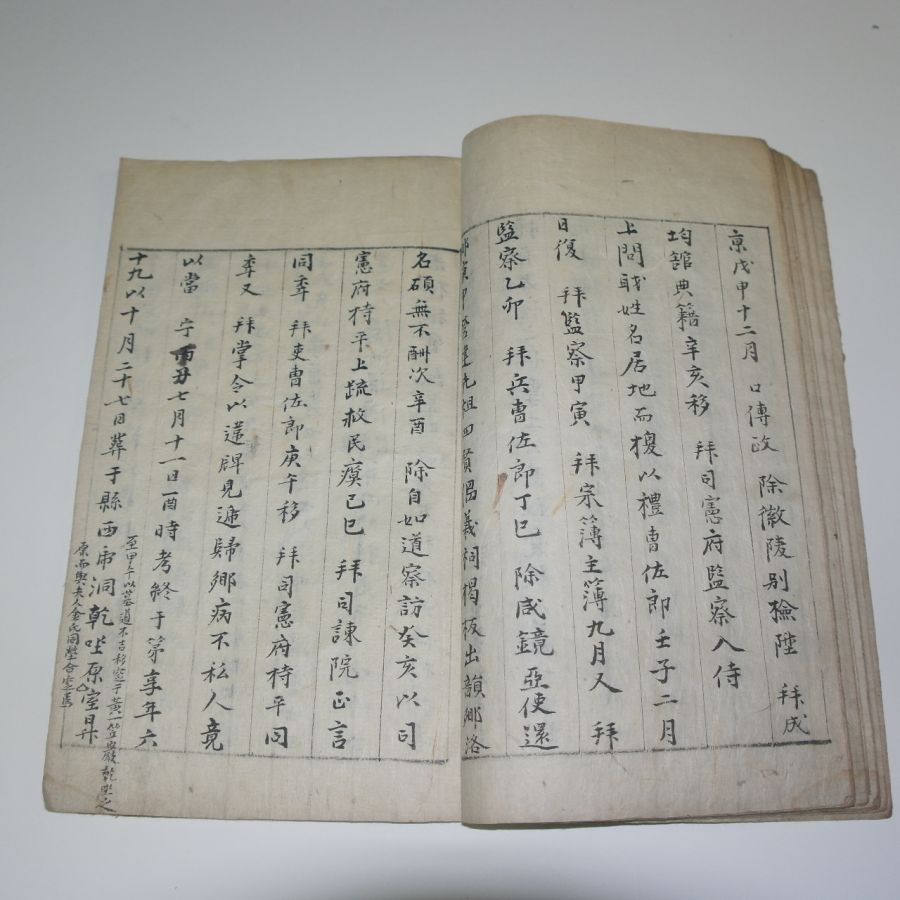 京戊申十二月 口傳政 除徽陵別檢陞 拜成
均館典籍辛亥移 拜司憲府監察入侍
上問職姓名居地而復以禮曹佐郎壬子二月
日復 拜監察甲寅 拜宗簿主簿九月又 拜
監察乙卯 拜兵曹佐郎丁巳 除咸鏡亞使還
四賢陽義祠揭板出韻鄉洛
名碩無不酬次辛酉 除自如道察訪癸亥以司
憲府持平上疏救民瘼己巳 拜司諫院正言
同季 拜吏曹佐郎庚午移 拜司憲府持平同
季又 拜掌令以違牌見遞歸鄉病不私人竟
以當 宁丁丑七月十一日酉時考終于第享年六
十九以十月二十七日葬于縣西 洞乾坐原室昇
至甲午以墓道不吉移窆于黃一笠巖乾坐之
原而與夫人金氏同塋合窆焉